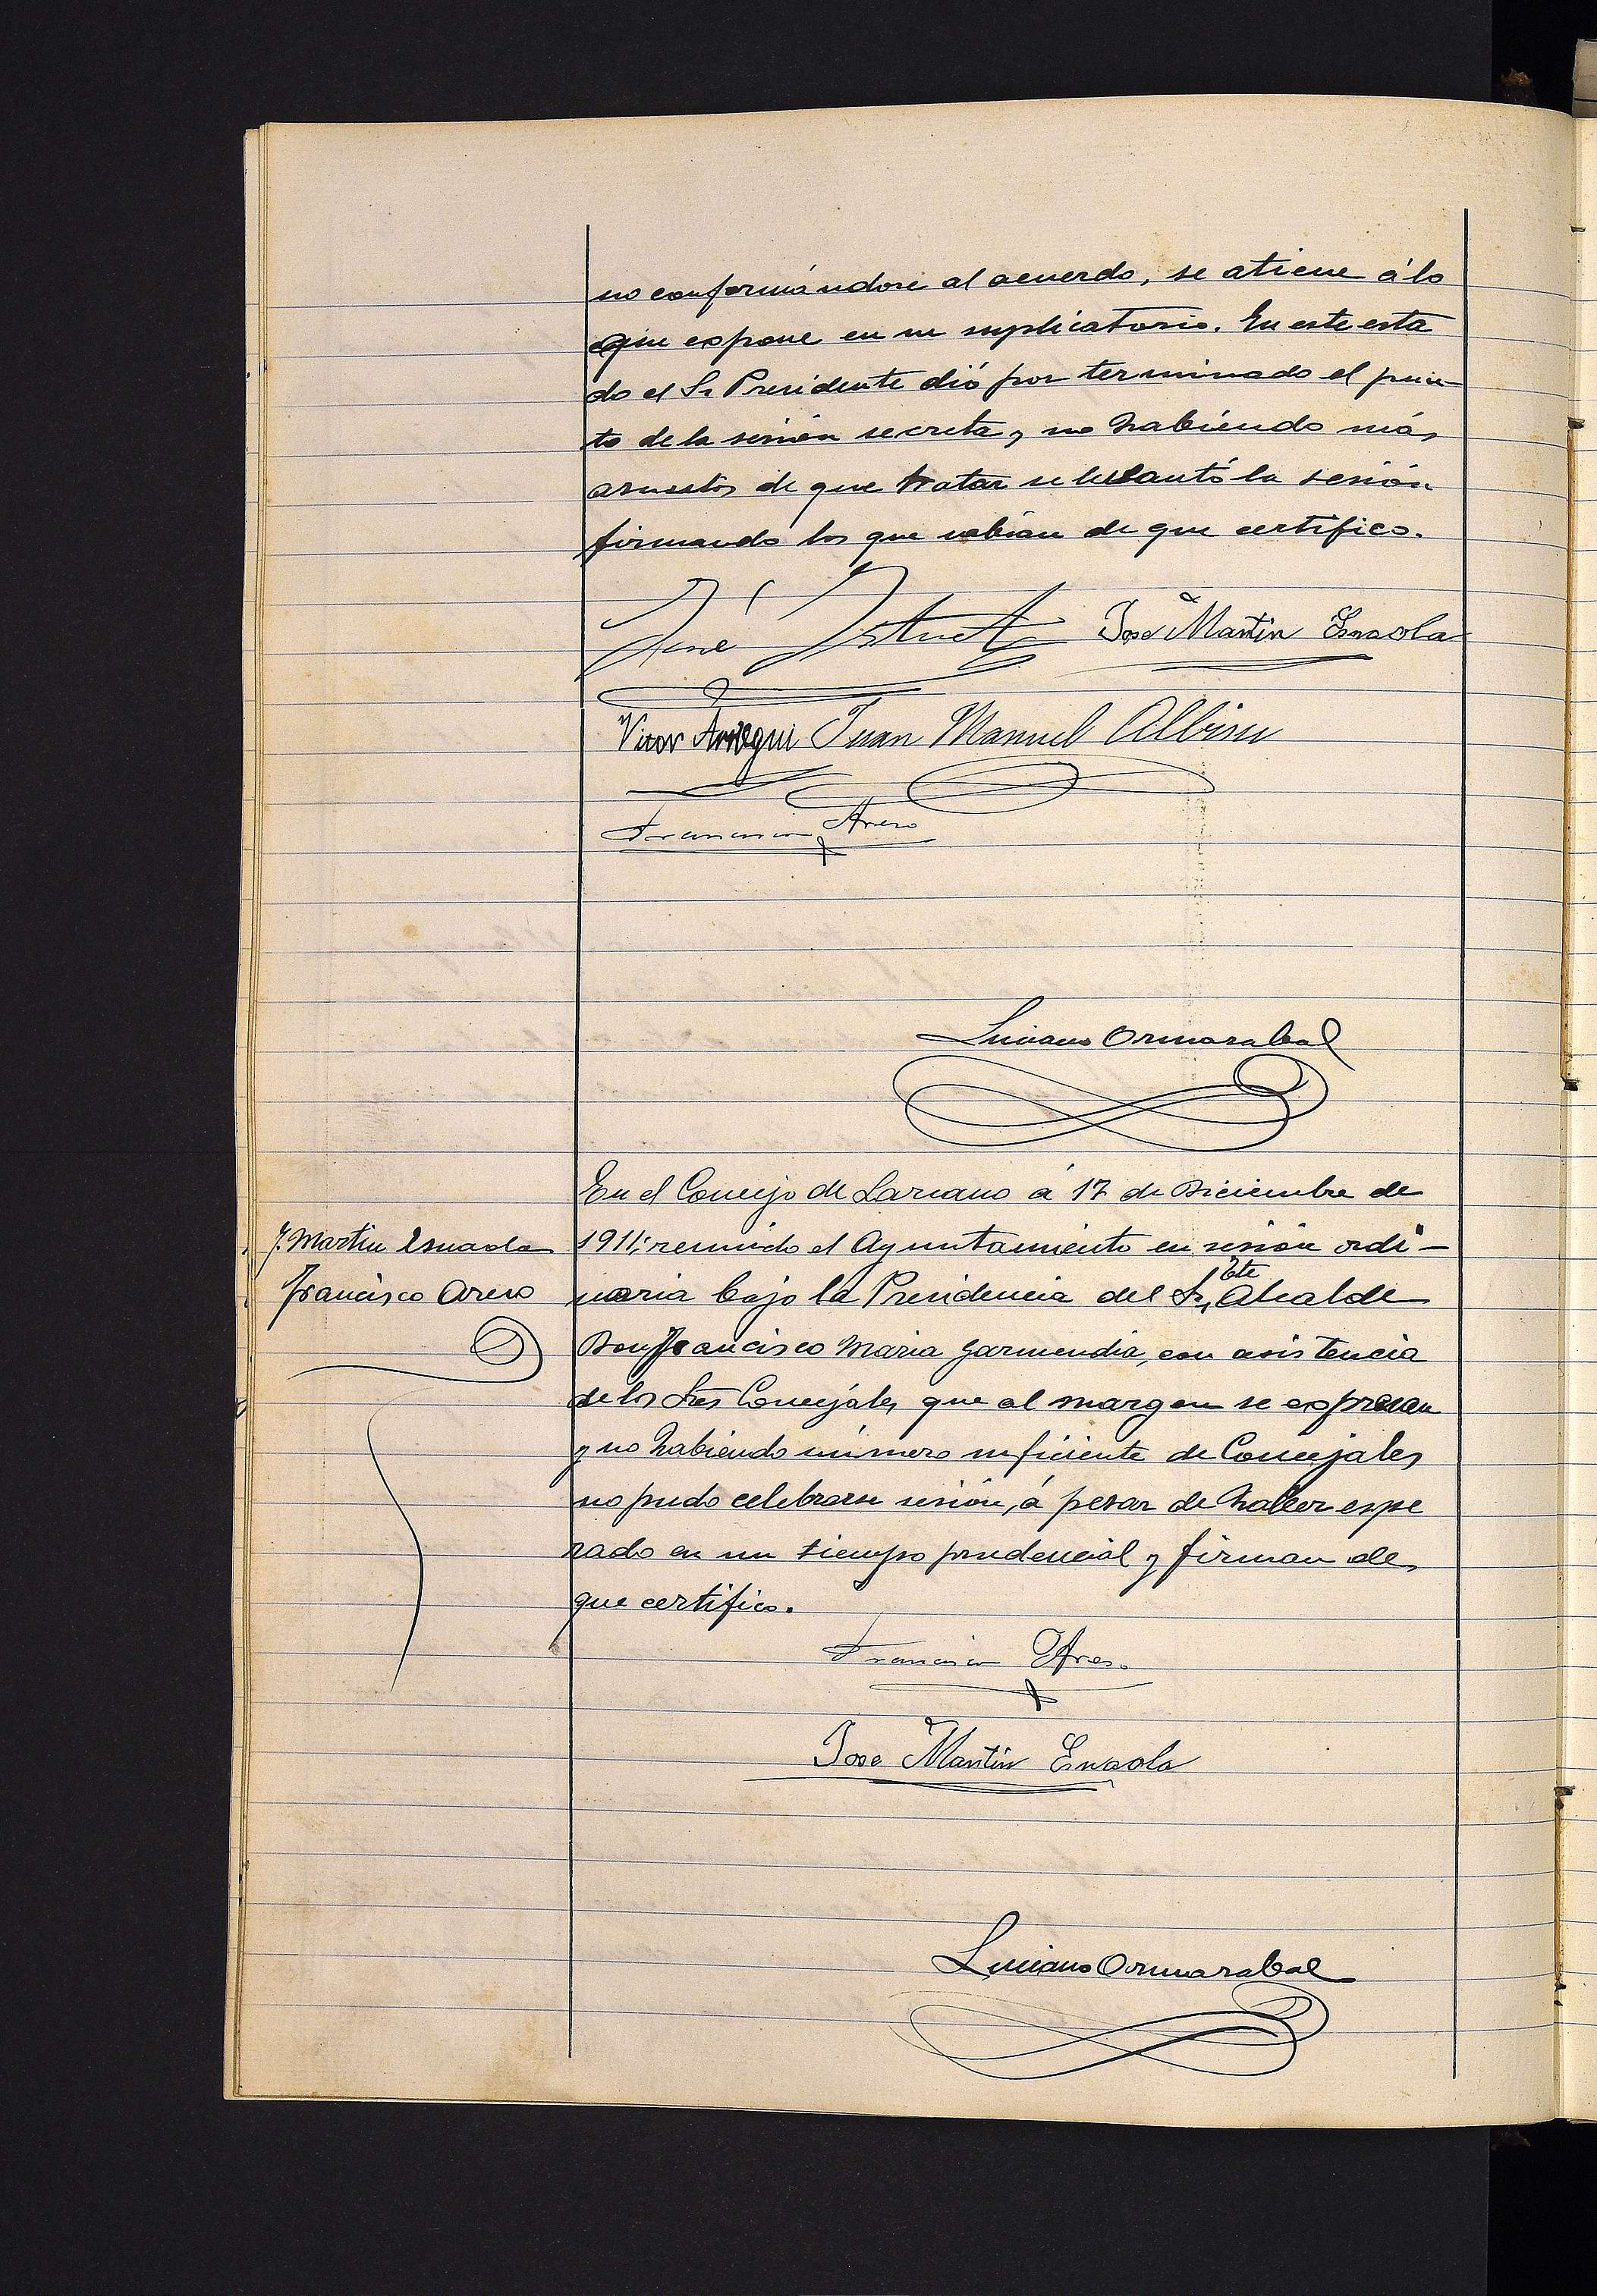 no conformándose al acuerdo, se atiene á lo
que expone en su suplicatorio. En este esta
do el Sr Presidente dió por terminado el pun-
to de la sesión secreta, y no habiendo más
asuntos de que tratar se levantó la sesión
firmando los que sabian de que certifico.
José Jose Martin Esnaola
Vitor Arregui Juan Manuel Albisu
Francisco Areso
Luciano Ormazabal
En el Concejo de Lazcano á 17 de Diciembre de
1911; reunido el Ayuntamiento en sesión ordi-
naria bajo la Presidencia del Sr, Tte Alcalde
Don Francisco Maria Garmendia, con asistencia
de los Sres Concejales que al margen se expresan
y no habiendo número suficiente de Concejales
no pudo celebrarse sesión, á pesar de haber espe
rado en un tiempo prudencial y firman de
que certifico.
J. Martin Esnaola
Francisco Areso
Francisco Areso
Jose Martin Esnaola
Luciano Ormazabal